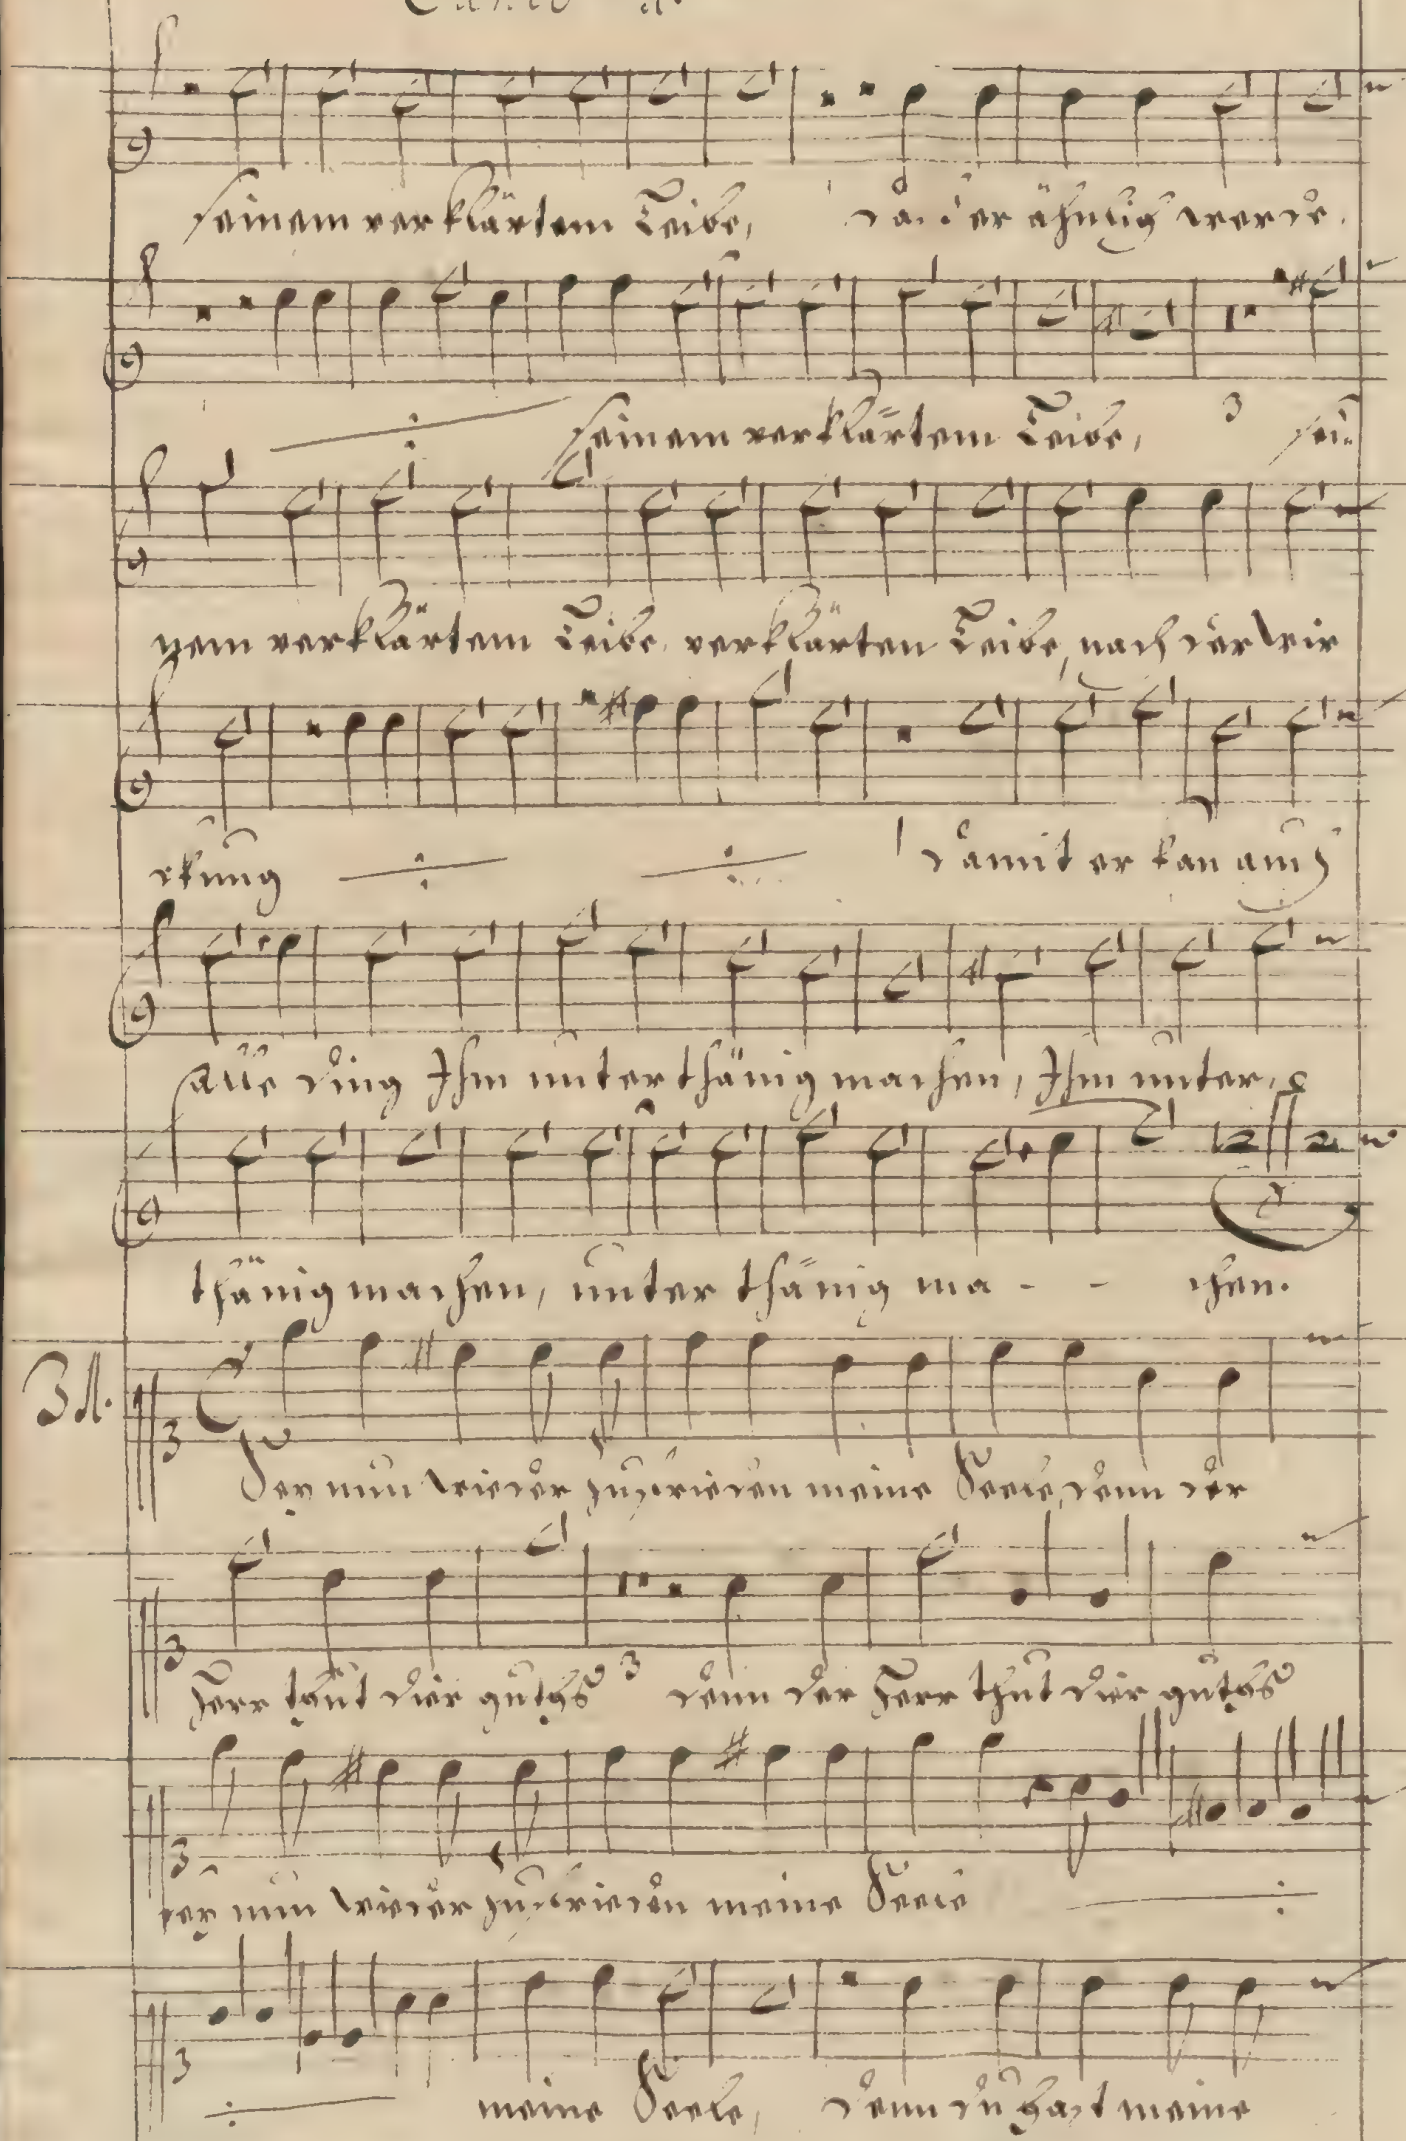 seinem verklärtem Leibe, daß er ähnlig werde.
seinem verklärtem Leibe, 3 sei-
nem verklärtem Leibe, verklärten Leibe, nach der Wir
rkung damit er kan auch
alle ding Ihm unterthänig machen, Ihm unter,
thänig machen, unterthänig ma - - chen.
3 A.
Sey nun wieder zufrieden meine Seele, denn der
Herr thut dier guthß 3 denn der Herr thut dier guthß
sey nun wieder zufrieden meine Seele
meine Seele, denn du hast meine